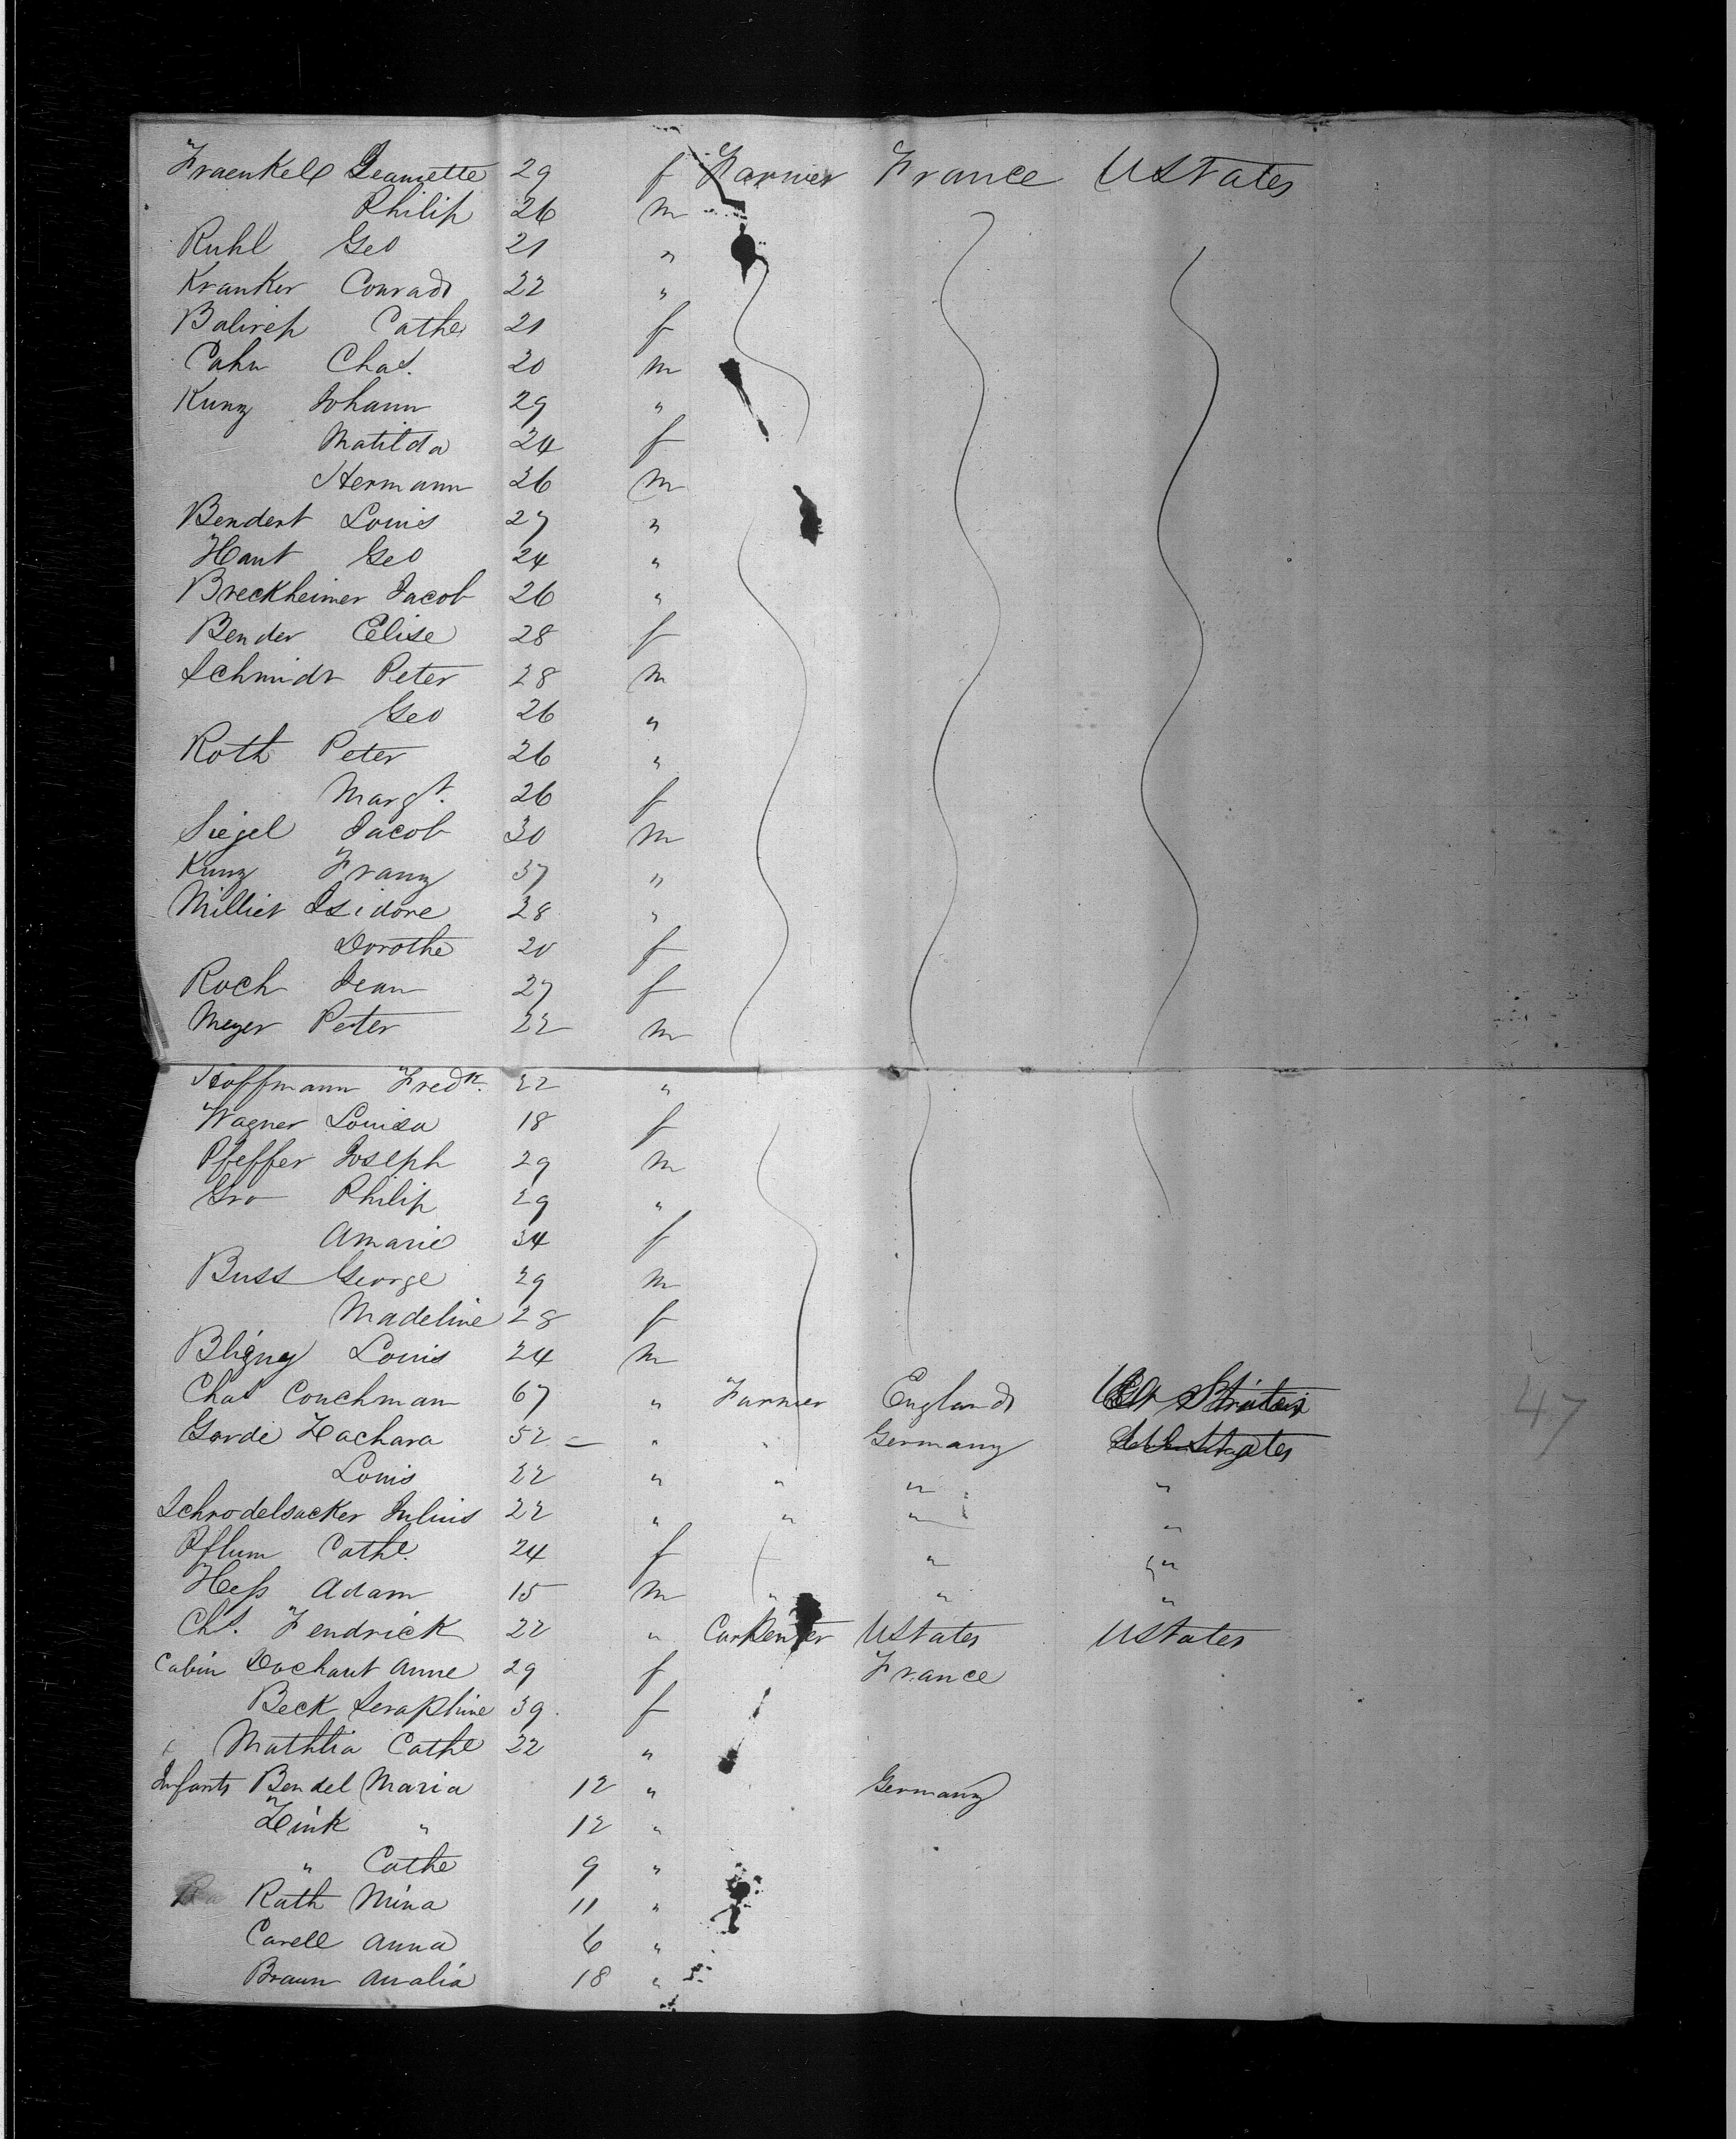 Fraenkel Jeanette 29 f Farmer France UStates
Philip 26 m
Ruhl Geo 21 "
Kranker Conrad 22 "
Cathe 21 f
Cahn Chas. 20 m
Kunz Johann 29 "
Matilda 24 f
Hermann 26 m
Bendert Louis 27 "
Haut Geo 24 "
Breckheimer Jacob 26 "
Bender Elise 28 f
Schmidt Peter 28 m
Geo 26 "
Roth Peter 26 "
Margt. 26 f
Siegel Jacob 30 m
Kunz Franz 37 "
Milliet Isidore 28 "
Dorothe 20 f
Roch Jean 27 f
Meyer Peter 22 m
Hoffmann Fredk. 22 "
Wagner Louisa 18 f
Pfeffer Joseph 29 m
Gro Philip 29 "
Amarie 34 f
Buss George 29 m
Madeline 28 f
Bligny Louis 24 m
Chas Couchman 67 " Farmer England States
47
Gorde Zachara 52 " " Germany States
Louis 22 " " " "
Schrodelsacker Julius 22 " " " "
Pflum Cathe. 24 f " "
Hess Adam 15 m " " "
Chs. Fendrick 22 " Carpenter UStates UStates
Cabin Dochaut Anne 29 f France
Beck Seraphine 39 f
Mathlia Cathe 22 "
Infants Bendel Maria 12 " Germany
Zink " 12 "
" Cathe 9 "
Rath Mina 11 "
Carell Anna 6 "
Braun Amalia 18 "